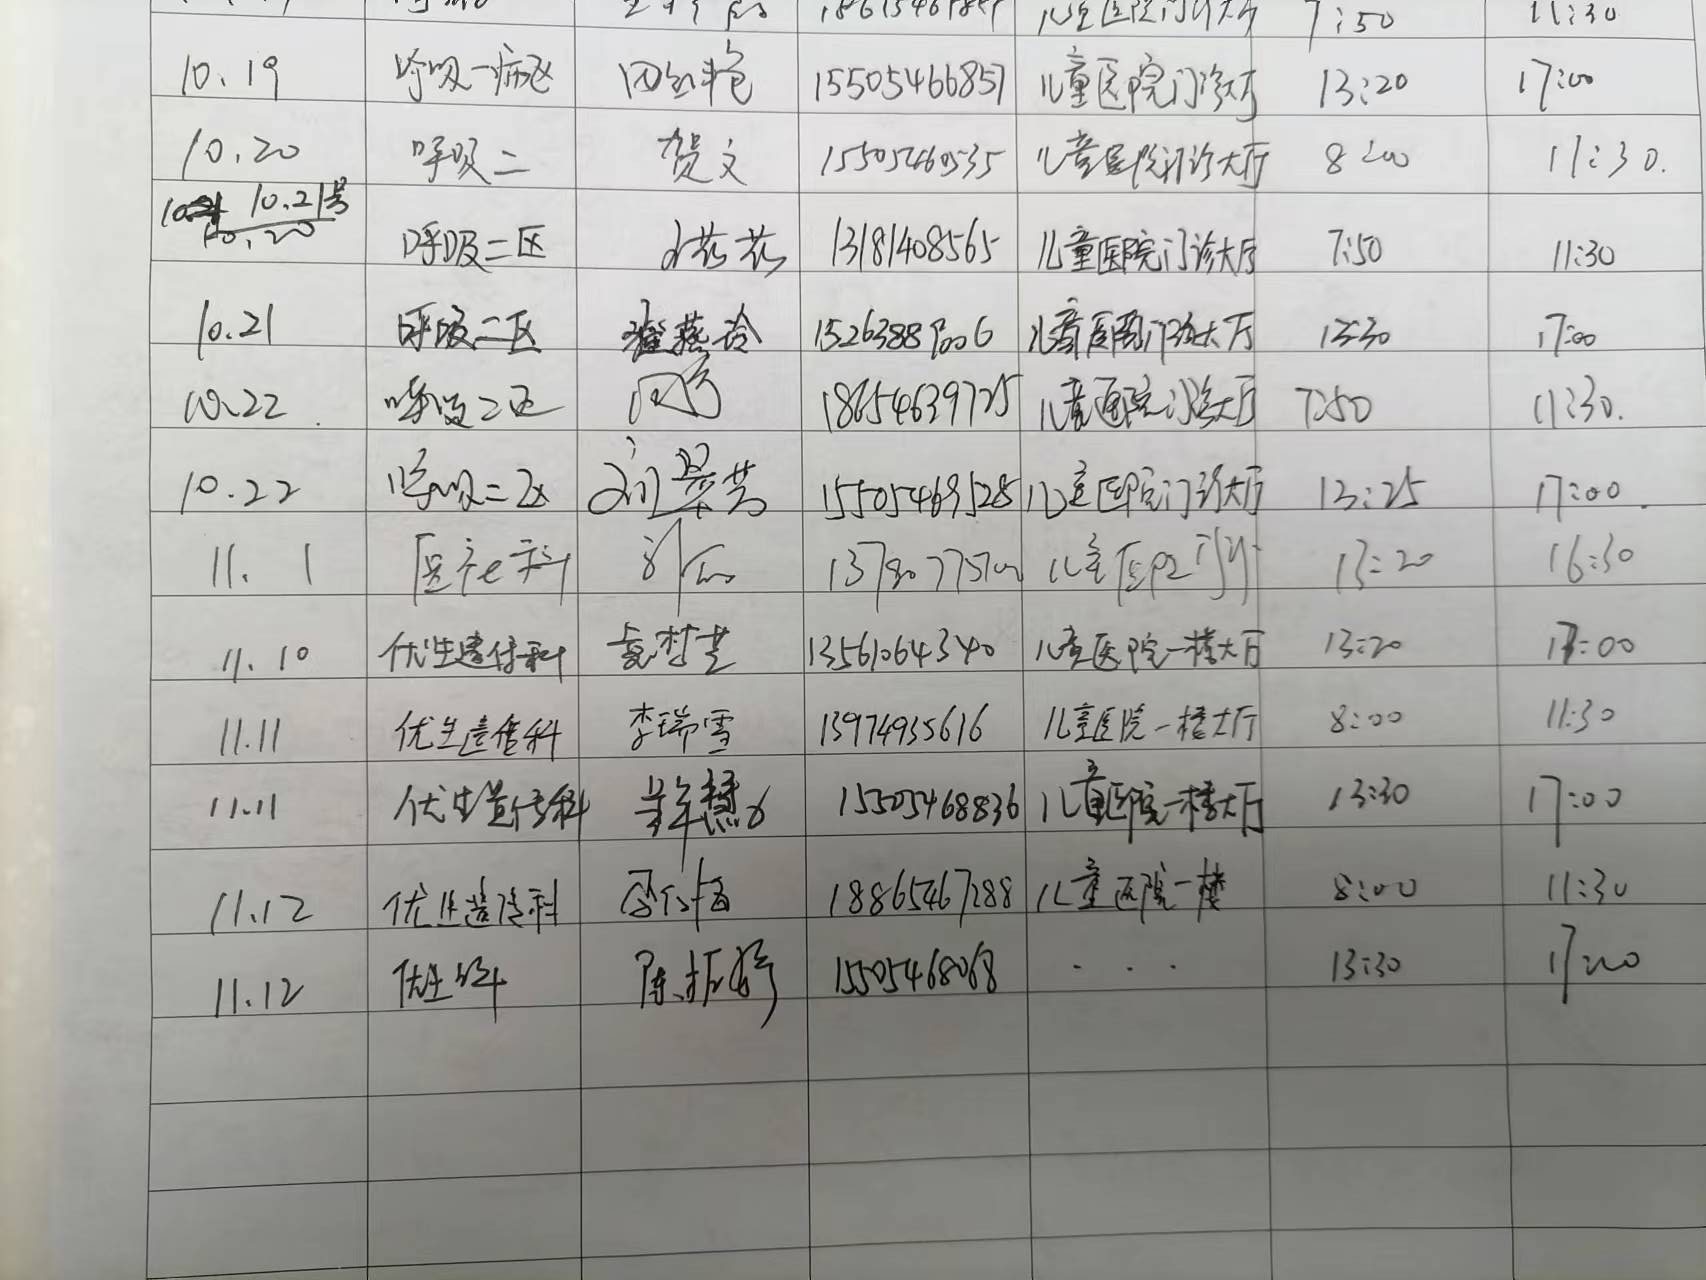 7:50 11:30
10.19 呼吸一病区 15505466857 儿童医院门诊大厅 13:20 17:00
10.20 呼吸二 贺文 15505460535 儿童医院门诊大厅 8:00 11:30.
10.21号
10.20 呼吸二区 13181408565 儿童医院门诊大厅 7:50 11:30
10.21 呼吸二区 燕玲 儿童医院门诊大厅 13:30 17:00
10.22. 呼吸二区 18654639725 儿童医院门诊大厅 7:50 11:30.
10.22 呼吸二区 刘翠芸 15505469528 儿童医院门诊大厅 13:25 17:00.
11.1 儿童医院门诊 13:20 16:30
11.10 优生遗传科 13561064340 儿童医院一楼大厅 13:20 17:00
11.11 优生遗传科 李瑞雪 13974935616 儿童医院一楼大厅 8:00 11:30
11.11 优生遗传科 15505468836 儿童医院一楼大厅 13:30 17:00
11.12 优生遗传科 18865467288 儿童医院一楼 8:00 11:30
11.12 陈振婷 15505468068 . . . 13:30 17:00